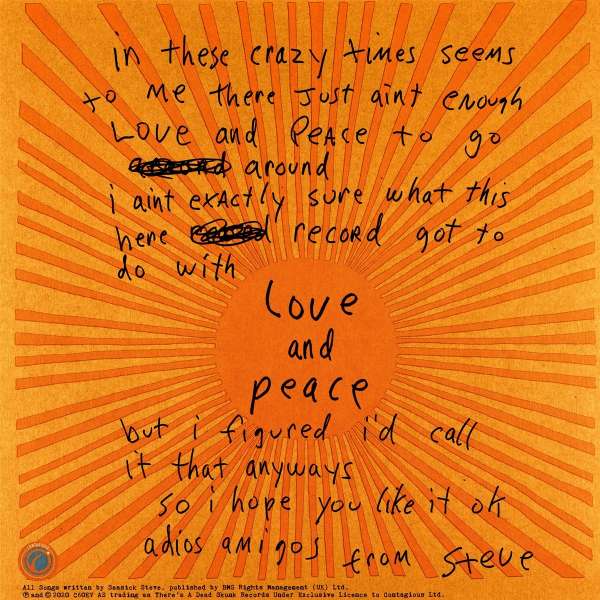 in these crazy times seems
to me there just aint enough
Love and Peace to go
around
i aint exactly sure what this
here record got to
do with
Love
and
peace
but i figured i'd call
it that anyways
so i hope you like it ok
adios amigos from Steve
All Songs written by Seasick Steve, published by BMG Rights Management (UK) Ltd.
℗ and © 2020 C60EV AS trading as There's A Dead Skunk Records Under Exclusive Licence to Contagious Ltd.